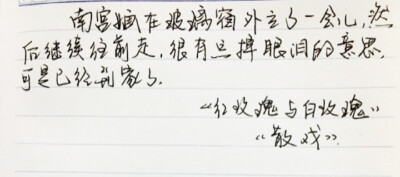 南宫婳在玻璃窗外立了一会儿，然
后继续往前走，很有点掉眼泪的意思，
可是已经到家了。
“红玫瑰与白玫瑰”
“散戏”